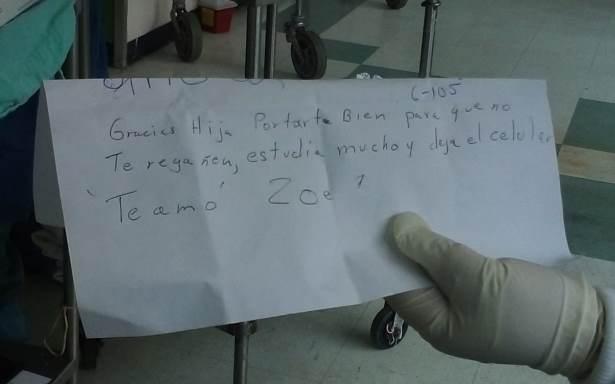 C-105
Gracias Hija Portarte Bien para que no
Te regañen, estudia mucho y deja el celular
"Te amo" Zoe"